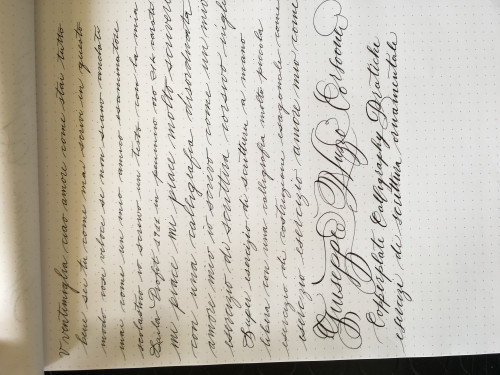 Ventimiglia ciao amore come stai tutto
bene sii tu come mai scrivi in questo
modo così veloce se non siamo andati
mai come un mio amico esaminatore
scolastico io scrivo un testo con la mia
me piace me piace molto scrivere
con una calligrafia disordinata
amore mio io scrivo come un mio
esercizio di scrittura corsivo ingl
Super esercizio di scrittura a mano
libera con una calligrafia molto piccola
esercizio di costruzione esagonale come
esercizio esercizio amore mio come
Giuseppe
Copperplate Calligraphy Pratiche
esercizi di scrittura ornamentale